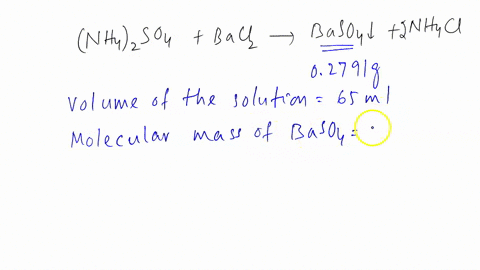 (NH4)2SO4 + BaCl2 → BaSO4↓ + 2NH4Cl
0.2791g
Volume of the solution = 65 ml
Molecular mass of BaSO4 =